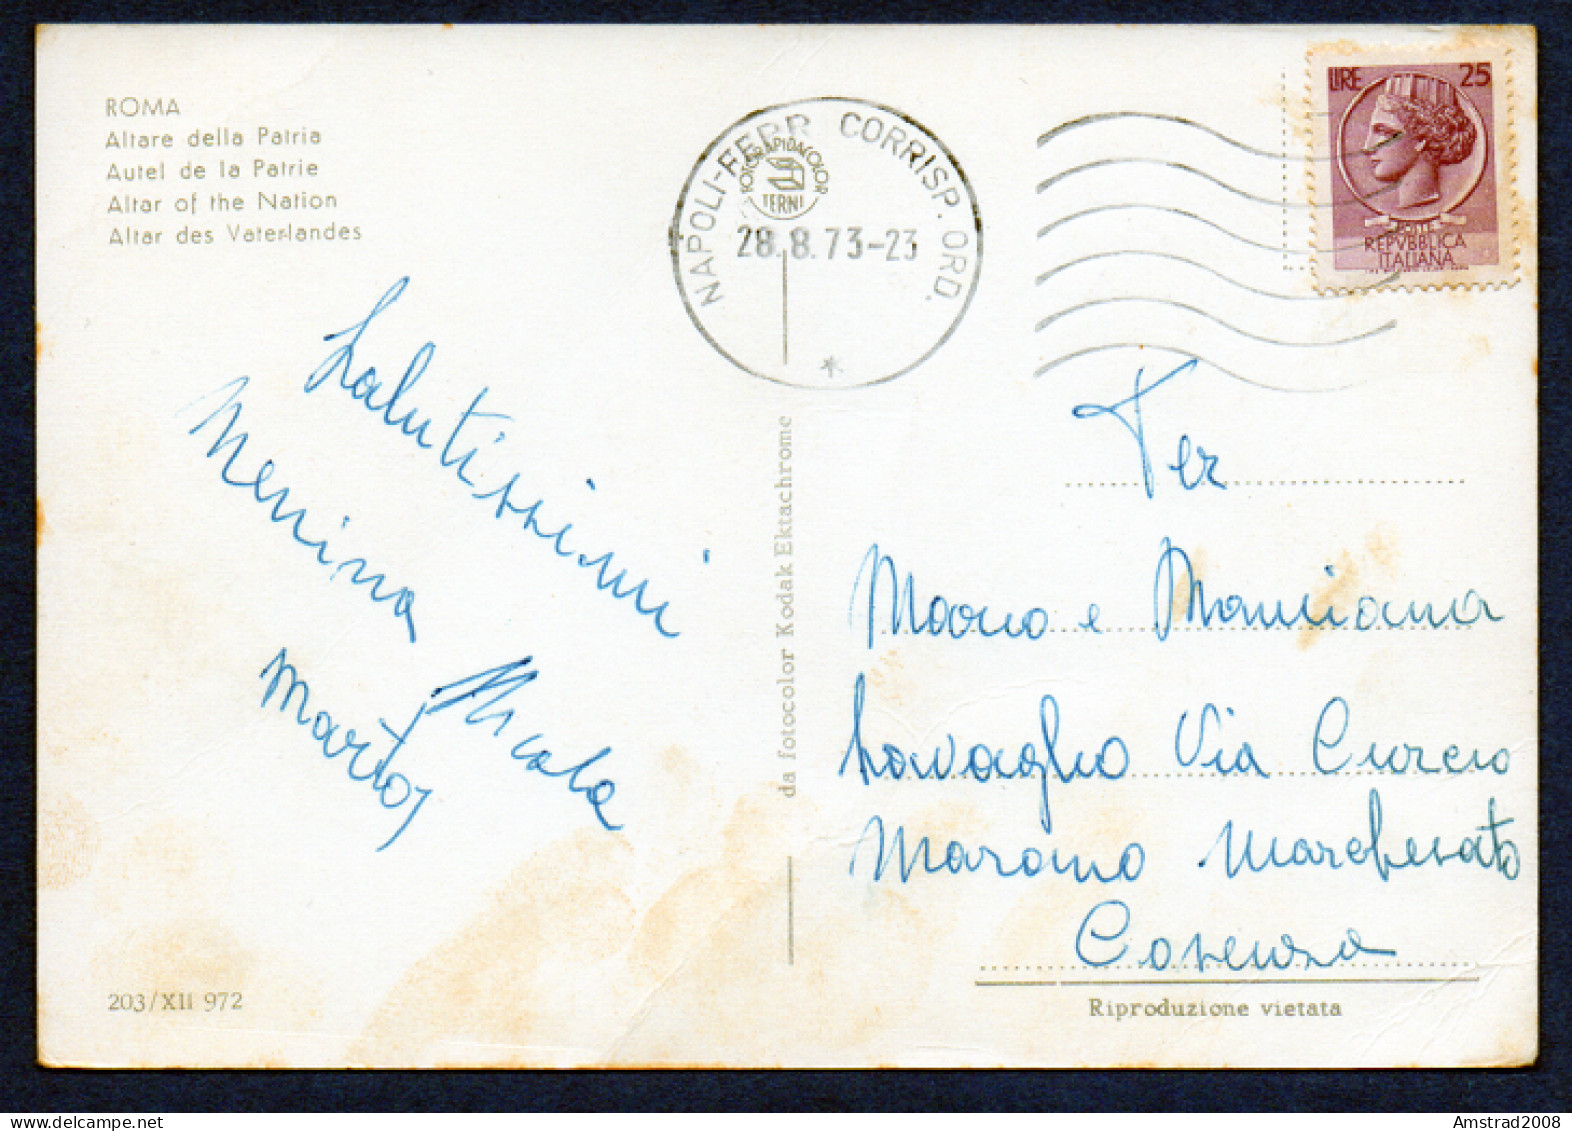 ROMA
Altare della Patria
Autel de la Patrie
Altar of the Nation
Altar des Vaterlandes
NAPOLI-FERR CORRISP. ORD.
ROTORAPIDACOLOR
TERNI
28.8.73-23
LIRE 25
POSTE
REPVBBLICA
ITALIANA
Salutissimi
Nennina
Nicola
Mario
Per
Mario e Marciana
Lovaglio Via Curcio
Marano Marchesato
Cosenza
da fotocolor Kodak Ektachrome
203/XII 972
Riproduzione vietata
Amstrad2008